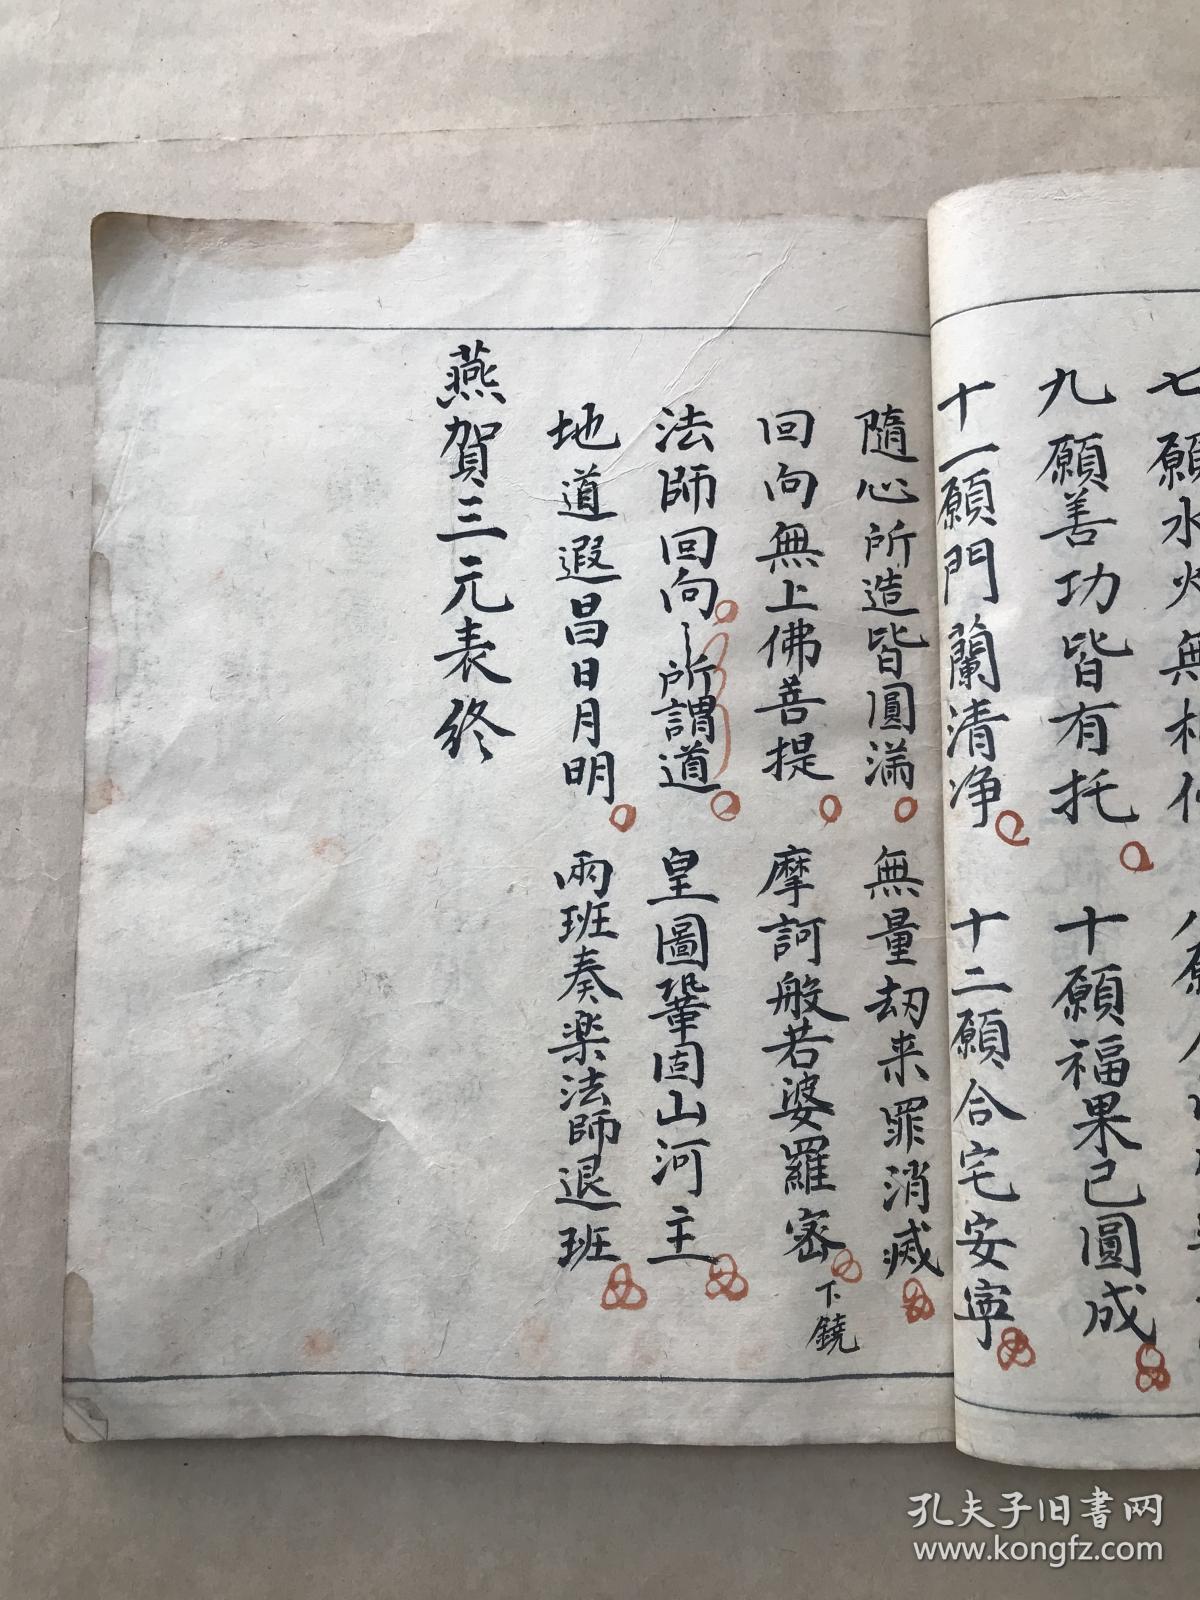 七願水火無相
九願善功皆有托 十願福果已圓成
十一願門蘭清净 十二願合宅安寧
隨心所造皆圓滿 無量劫来罪消滅
回向無上佛菩提 摩訶般若婆羅密 下鐃
法師回向所謂道 皇圖鞏固山河主
地道遐昌日月明 兩班奏楽法師退班
燕賀三元表終
孔夫子旧书网
www.kongfz.com